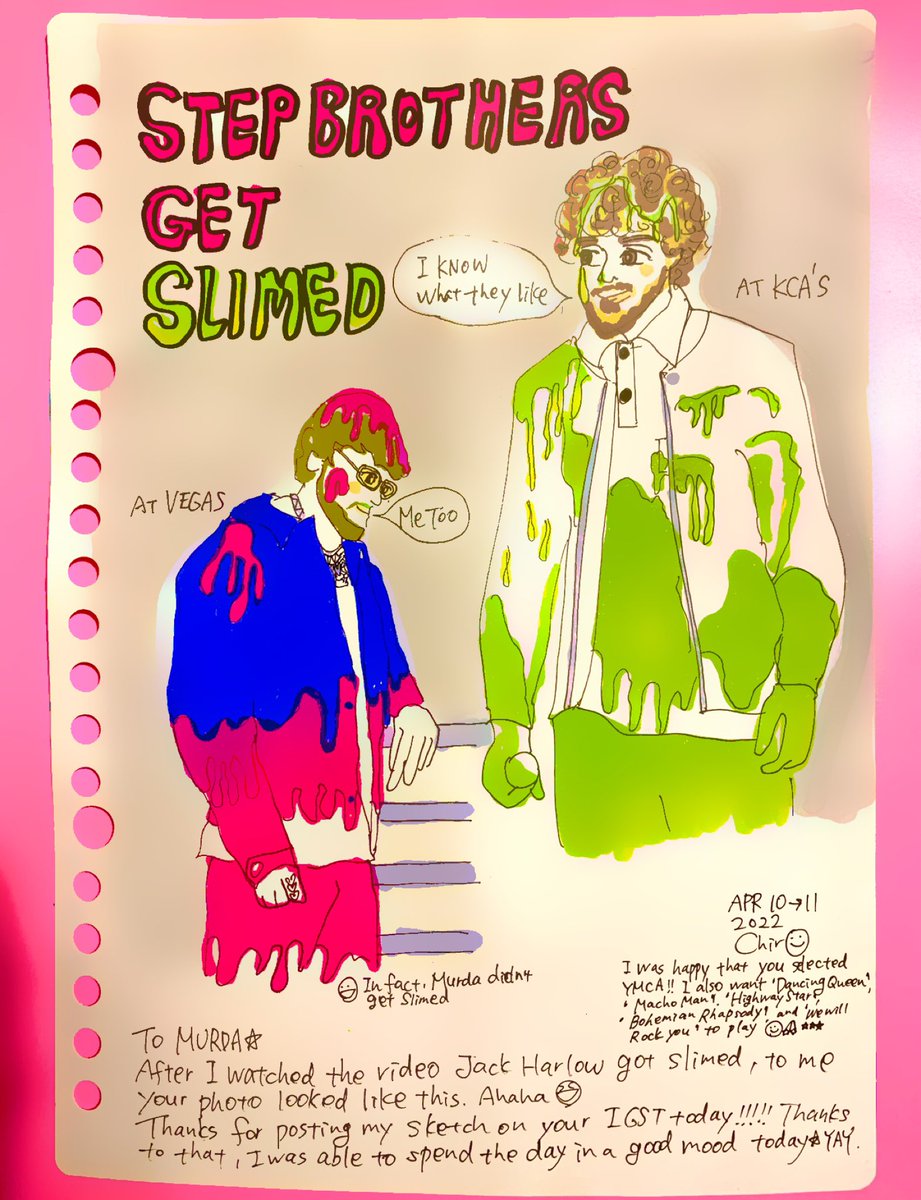 STEP BROTHERS
GET
SLIMED
I KNOW
what they like
AT KCA'S
AT VEGAS
Me Too
APR 10→11
2022
Chir☺
I was happy that you selected
YMCA!! I also want 'Dancing Queen',
'Macho Man', 'Highway Star',
'Bohemian Rhapsody' and 'We will
Rock you' to play
In fact, Murda didn't
get slimed
To MURDA☆
After I watched the video Jack Harlow got slimed, to me
your photo looked like this. Ahaha
Thanks for posting my sketch on your IGST today!!!!! Thanks
to that, I was able to spend the day in a good mood today☆YAY.